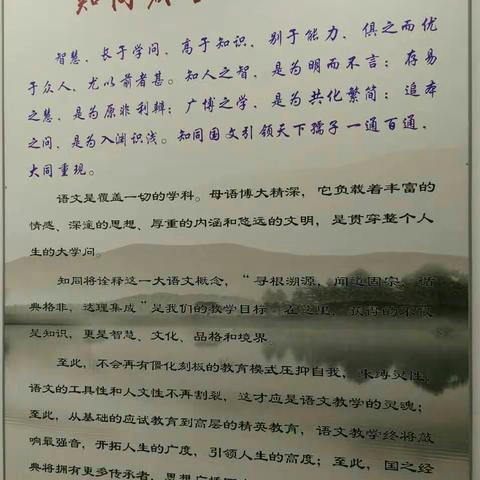 智慧，长于学问，高于知识，别于能力，俱之而优
于众人，尤以前者甚。知人之智，是为明而不言；存易
之慧，是为原非利辨；广博之学，是为共化繁简；追本
之问，是为入渊识浅。知同国文引领天下孺子一通百通，
大同重现。
语文是覆盖一切的学科。母语博大精深，它负载着丰富的
情感、深邃的思想、厚重的内涵和悠远的文明，是贯穿整个人
生的大学问。
知同将诠释这一大语文概念，“寻根溯源，闻道固宗，循
典格非，达理集成”是我们的教学目标。在这里，获得的不仅
是知识，更是智慧、文化、品格和境界。
至此，不会再有僵化刻板的教育模式压抑自我，束缚灵性，
语文的工具性和人文性不再割裂，这才应是语文教学的灵魂；
至此，从基础的应试教育到高层的精英教育，语文教学终将敲
响最强音，开拓人生的广度，引领人生的高度；至此，国之经
典将拥有更多传承者，思想广播